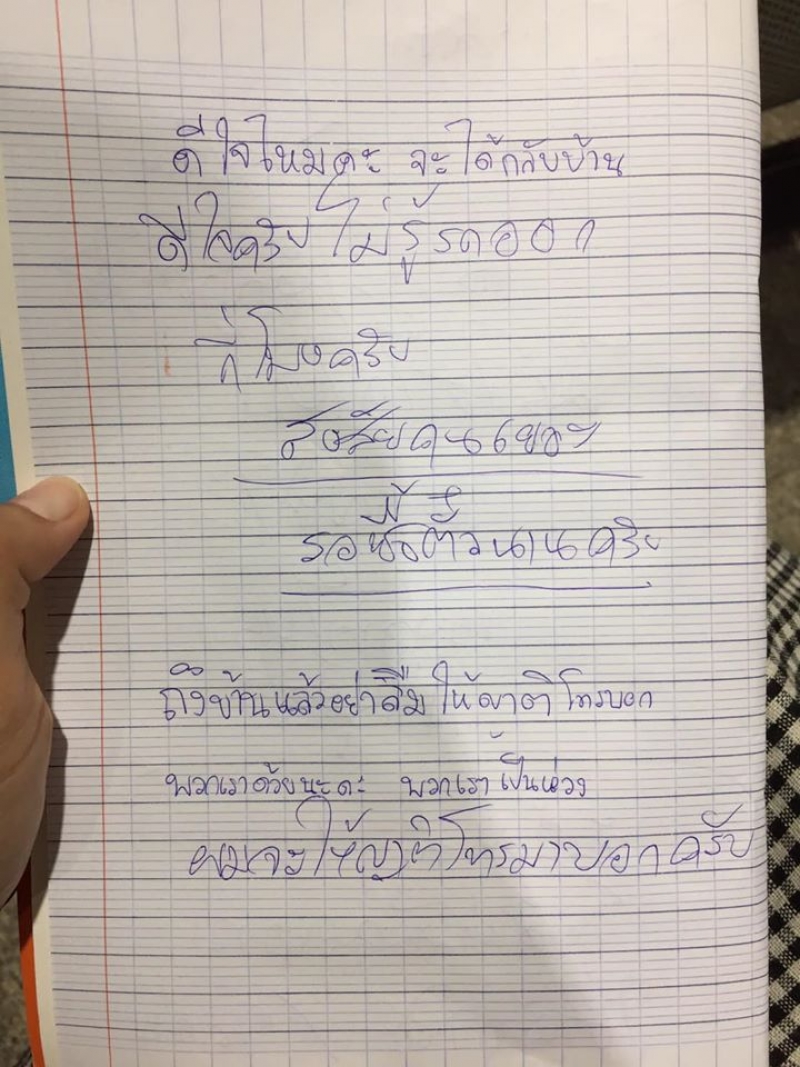 ดีใจไหมคะ จะได้กลับบ้าน
ดีใจครับ ไม่รู้รถออก
กี่โมงครับ
สงสัยคนเยอะ
รอซื้อตั๋วนานครับ
ถึงบ้านแล้วอย่าลืม ให้ญาติ โทรบอก
พวกเราด้วยนะคะ พวกเราเป็นห่วง
ผมจะให้ญาติโทรมาบอกครับ